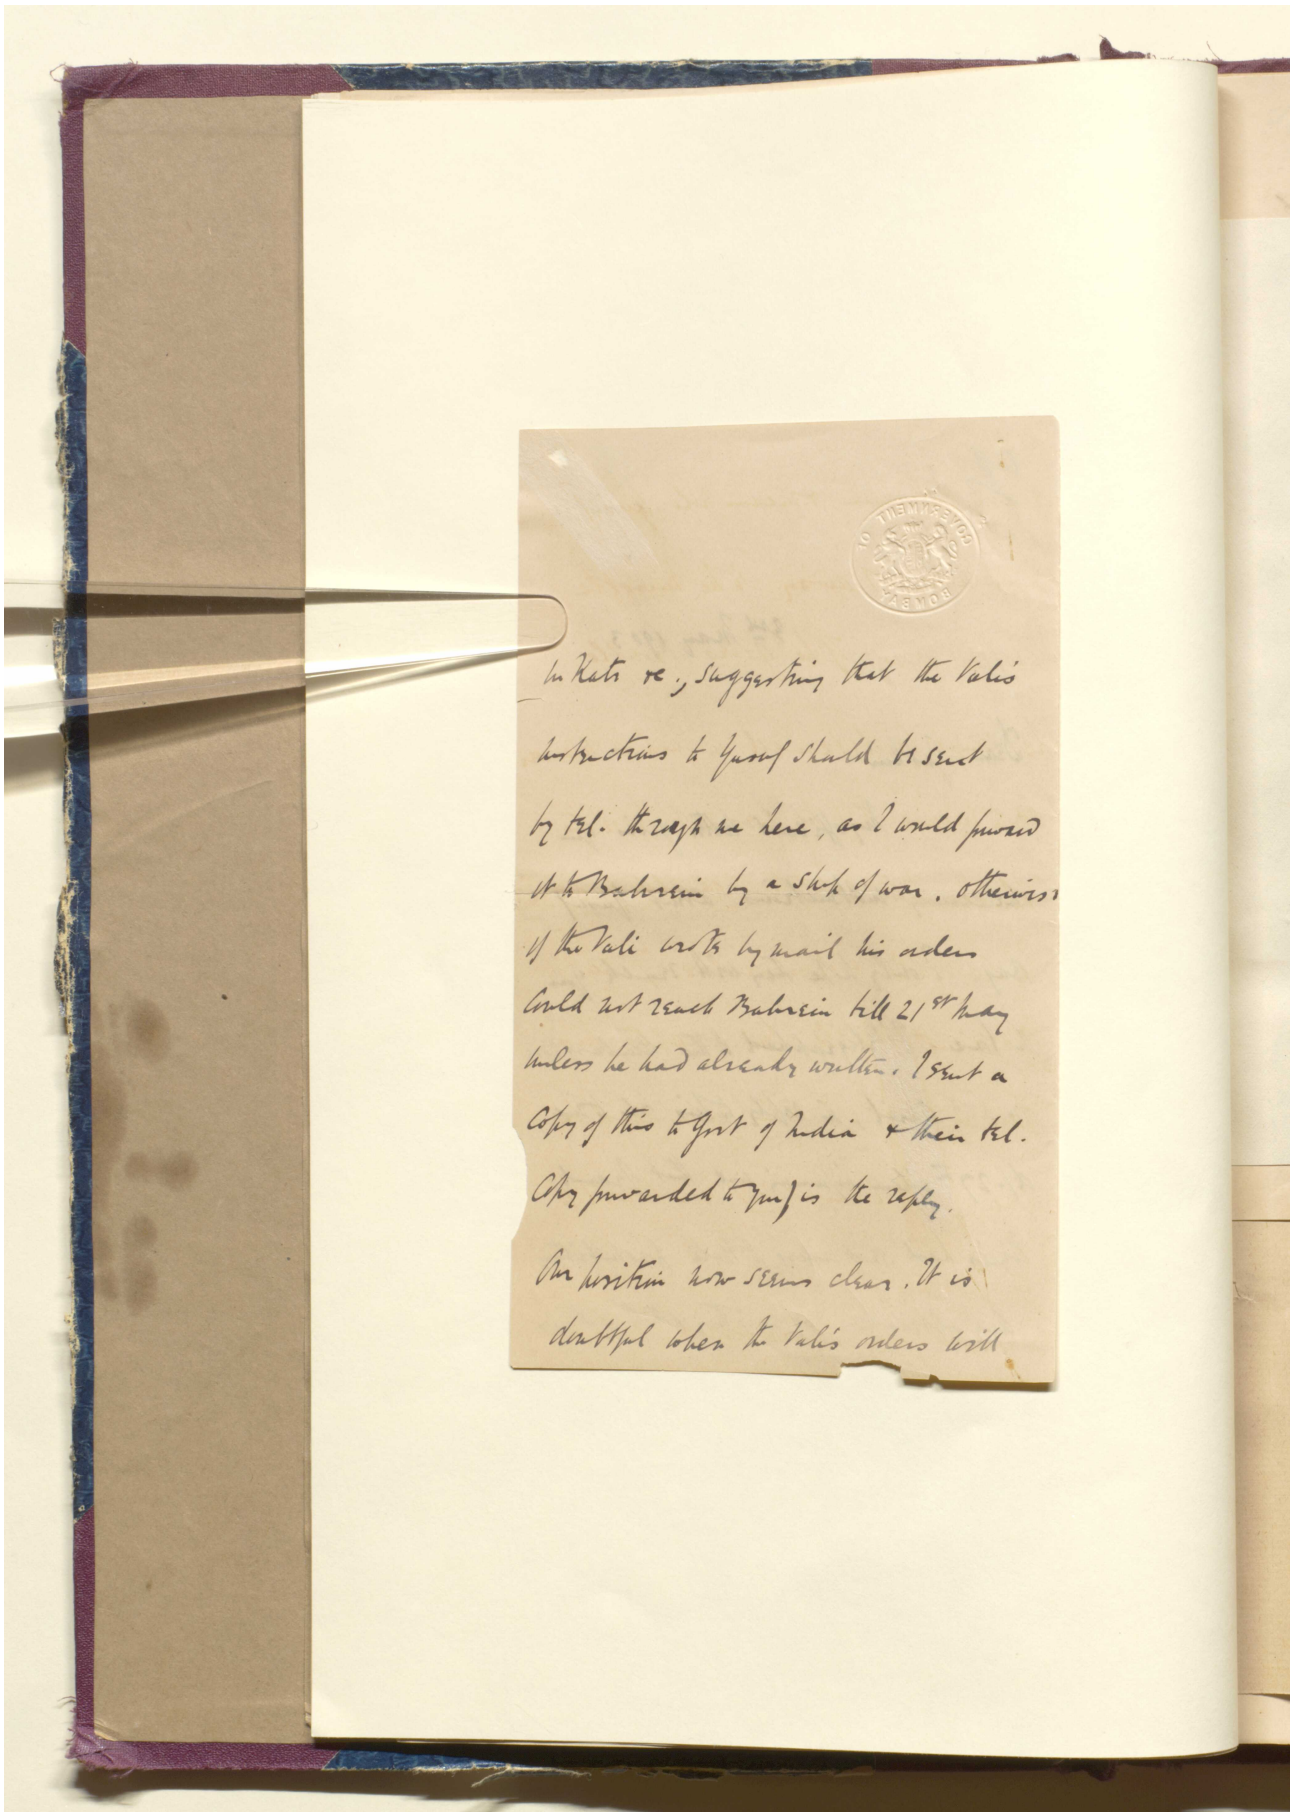 GOVERNMENT OF BOMBAY
suggesting that the Vali's
instructions to Yusuf should be sent
by tel. through me here, as I would forward
it to Bahrein by a ship of war. Otherwise
if the Vali wrote by mail his orders
could not reach Bahrein till 21st May
unless he had already written. I sent a
copy of this to Govt of India & their tel.
Copy forwarded to you) is the reply.
Our position now seems clear. It is
doubtful when the Vali's orders will